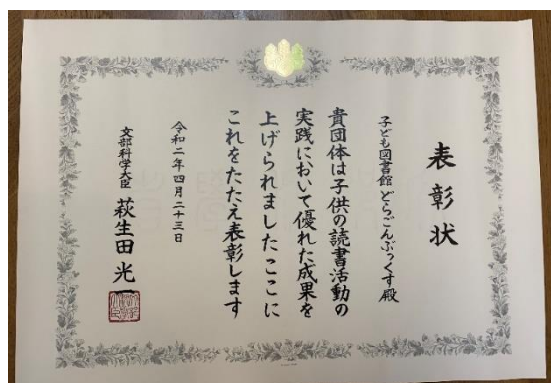 表彰状
子ども図書館 どらごんぶっくす殿
貴団体は子供の読書活動の
実践において優れた成果を
上げられましたここに
これをたたえ表彰します
令和二年四月二十三日
文部科学大臣 萩生田光一